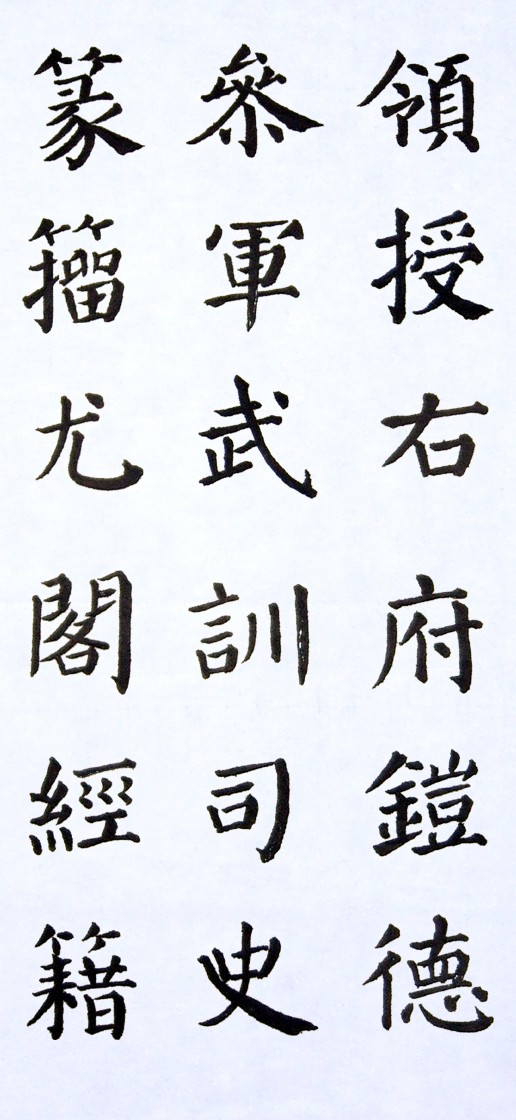 領授右府鎧德
參軍武訓司史
篆籀尤閣經籍